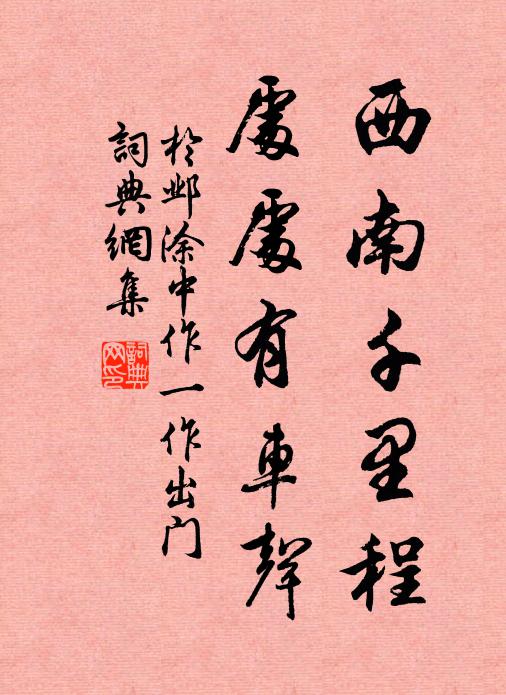 西南千里程
處處有車聲
於邺涂中作一作出门
詞典網集
詞典
网印